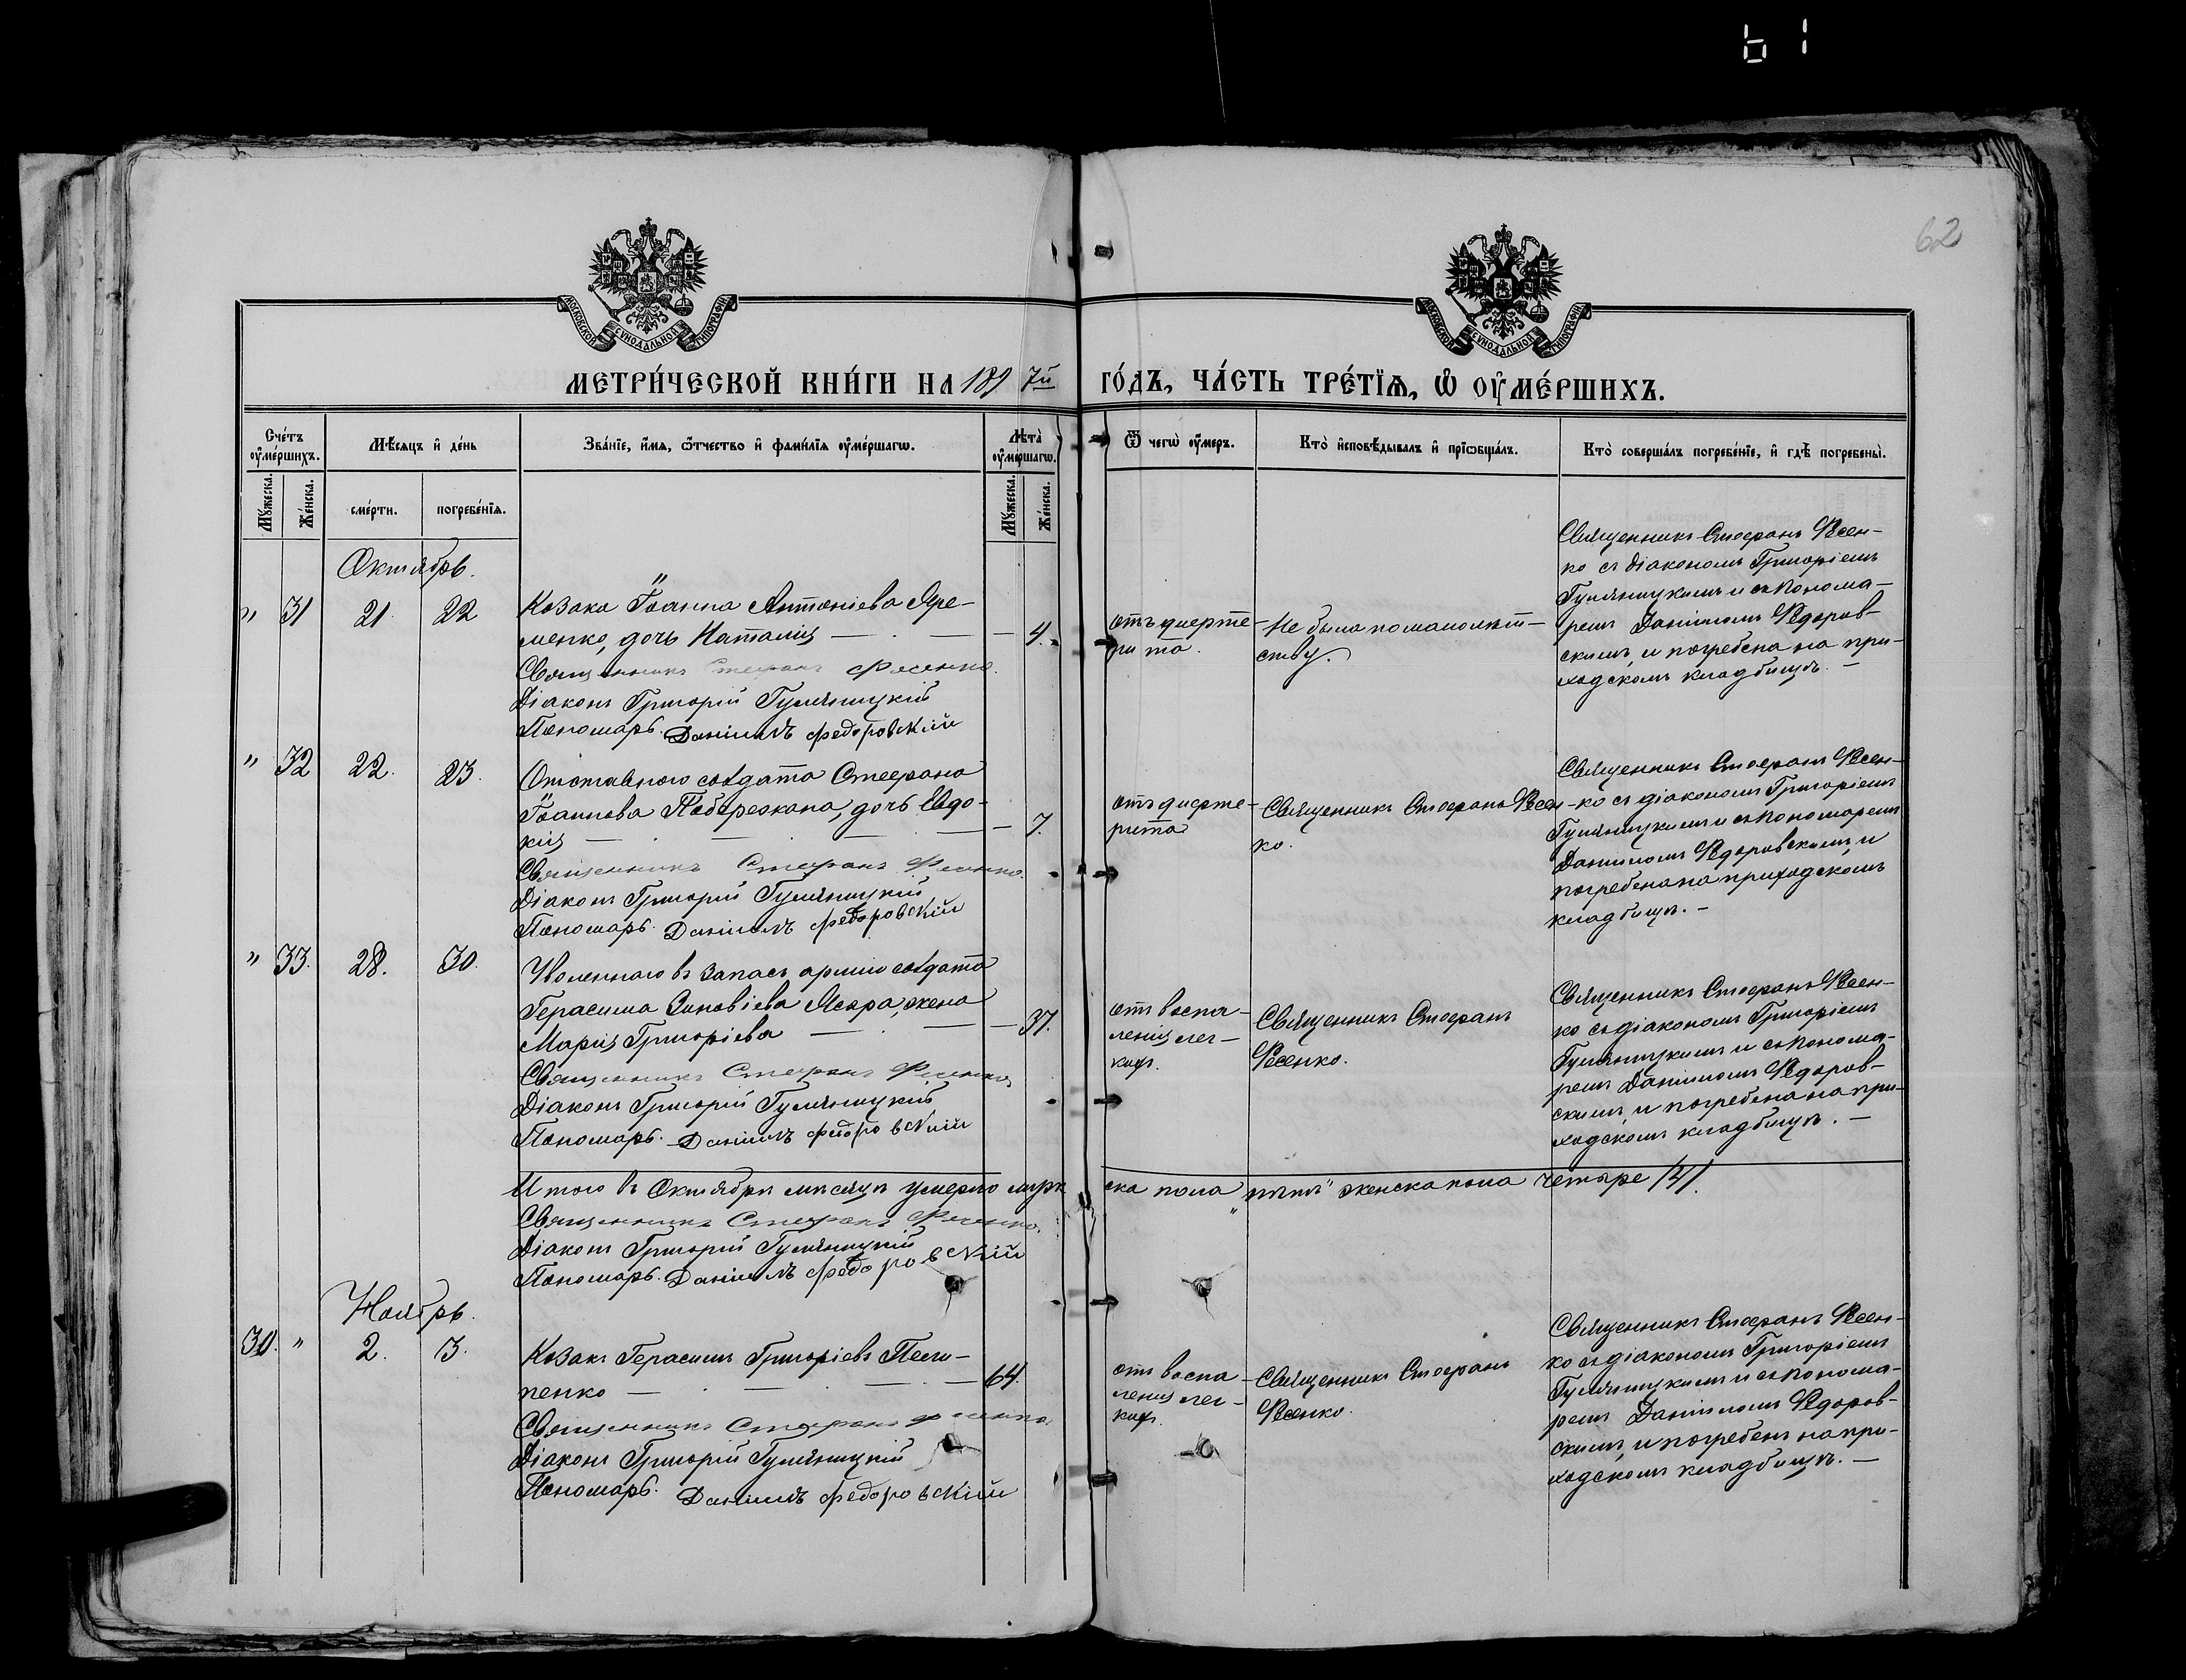 61
62
МОСКОВСКОЙ СѴНОДАЛЬНОЙ ТИПОГРАФІИ
МОСКОВСКОЙ СѴНОДАЛЬНОЙ ТИПОГРАФІИ
МЕТРИ́ЧЕСКОЙ КНИ́ГИ НА 1897й ГО́ДЪ, ЧА́СТЬ ТРЕ́ТЇѦ, Ѡ҆ ОУ҆МЕ́РШИХЪ.
Сче́тъ оу҆ме́ршихъ.
Мѣ́сяцъ и҆ де́нь
Зва́нїе, и҆́мя, ѻ҆́тчество и҆ фами́лїя оу҆ме́ршагѡ.
Лѣта̀ оу҆ме́ршагѡ.
Ѿ чегѡ̀ оу҆́меръ.
Кто̀ и҆сповѣ́дывалъ и҆ прїѡбща́лъ.
Кто̀ соверша́лъ погребе́нїе, и҆ гдѣ̀ погребены̀.
Мꙋ́жеска.
Же́нска.
сме́рти.
погребе́нїя.
Мꙋ́жеска.
Же́нска.
Октябрь.
" 31 21. 22
Козака Іоанна Антоніева Яре-
менко, дочь Наталія — 4.
Священникъ Стефанъ Фесенко.
Діаконъ Григорій Гумяницкій
Пономарь Даніилъ Федоровскій
отъ дифте-
рита.
Не была по малолѣт-
ству.
Священникъ Стефанъ Фесен-
ко съ діакономъ Григоріемъ
Гумяницкимъ и съ понома-
ремъ Даніиломъ Федоров-
скимъ, и погребена на при-
ходскомъ кладбищѣ. —
" 32 22. 23.
Отставного солдата Стефана
Іоаннова Побережана, дочь Евдо-
кія — 7.
Священникъ Стефанъ Фесенко.
Діаконъ Григорій Гумяницкій
Пономарь Даніилъ Федоровскій
отъ дифте-
рита
Священникъ Стефанъ Фесен-
ко.
Священникъ Стефанъ Фесен-
ко съ діакономъ Григоріемъ
Гумяницкимъ и съ пономаремъ
Даніиломъ Федоровскимъ, и
погребена на приходскомъ
кладбищѣ. —
" 33. 28. 30.
Уволеннаго въ запасъ арміи солдата
Герасима Зиновіева жена
Марія Григоріева — 37.
Священникъ Стефанъ Фесенко
Діаконъ Григорій Гумяницкій
Пономарь Даніилъ Федоровскій
отъ воспа-
ленія лег-
кихъ.
Священникъ Стефанъ
Фесенко.
Священникъ Стефанъ Фесен-
ко съ діакономъ Григоріемъ
Гумяницкимъ и съ понома-
ремъ Даніиломъ Федоров-
скимъ, и погребена на при-
ходскомъ кладбищѣ. —
Итого въ Октябрѣ мѣсяцѣ умерло мужеска пола женска пола четыре /4/.
Священникъ Стефанъ Фесенко.
Діаконъ Григорій Гумяницкій
Пономарь Даніилъ Федоровскій
Ноябрь.
30. " 2. 3.
Козакъ Герасимъ Григоріевъ
пенко — 64.
Священникъ Стефанъ Фесенко
Діаконъ Григорій Гумяницкій
Пономарь Даніилъ Федоровскій
отъ воспа-
ленія лег-
кихъ.
Священникъ Стефанъ
Фесенко.
Священникъ Стефанъ Фесен-
ко съ діакономъ Григоріемъ
Гумяницкимъ и съ понома-
ремъ Даніиломъ Федоров-
скимъ, и погребенъ на при-
ходскомъ кладбищѣ. —